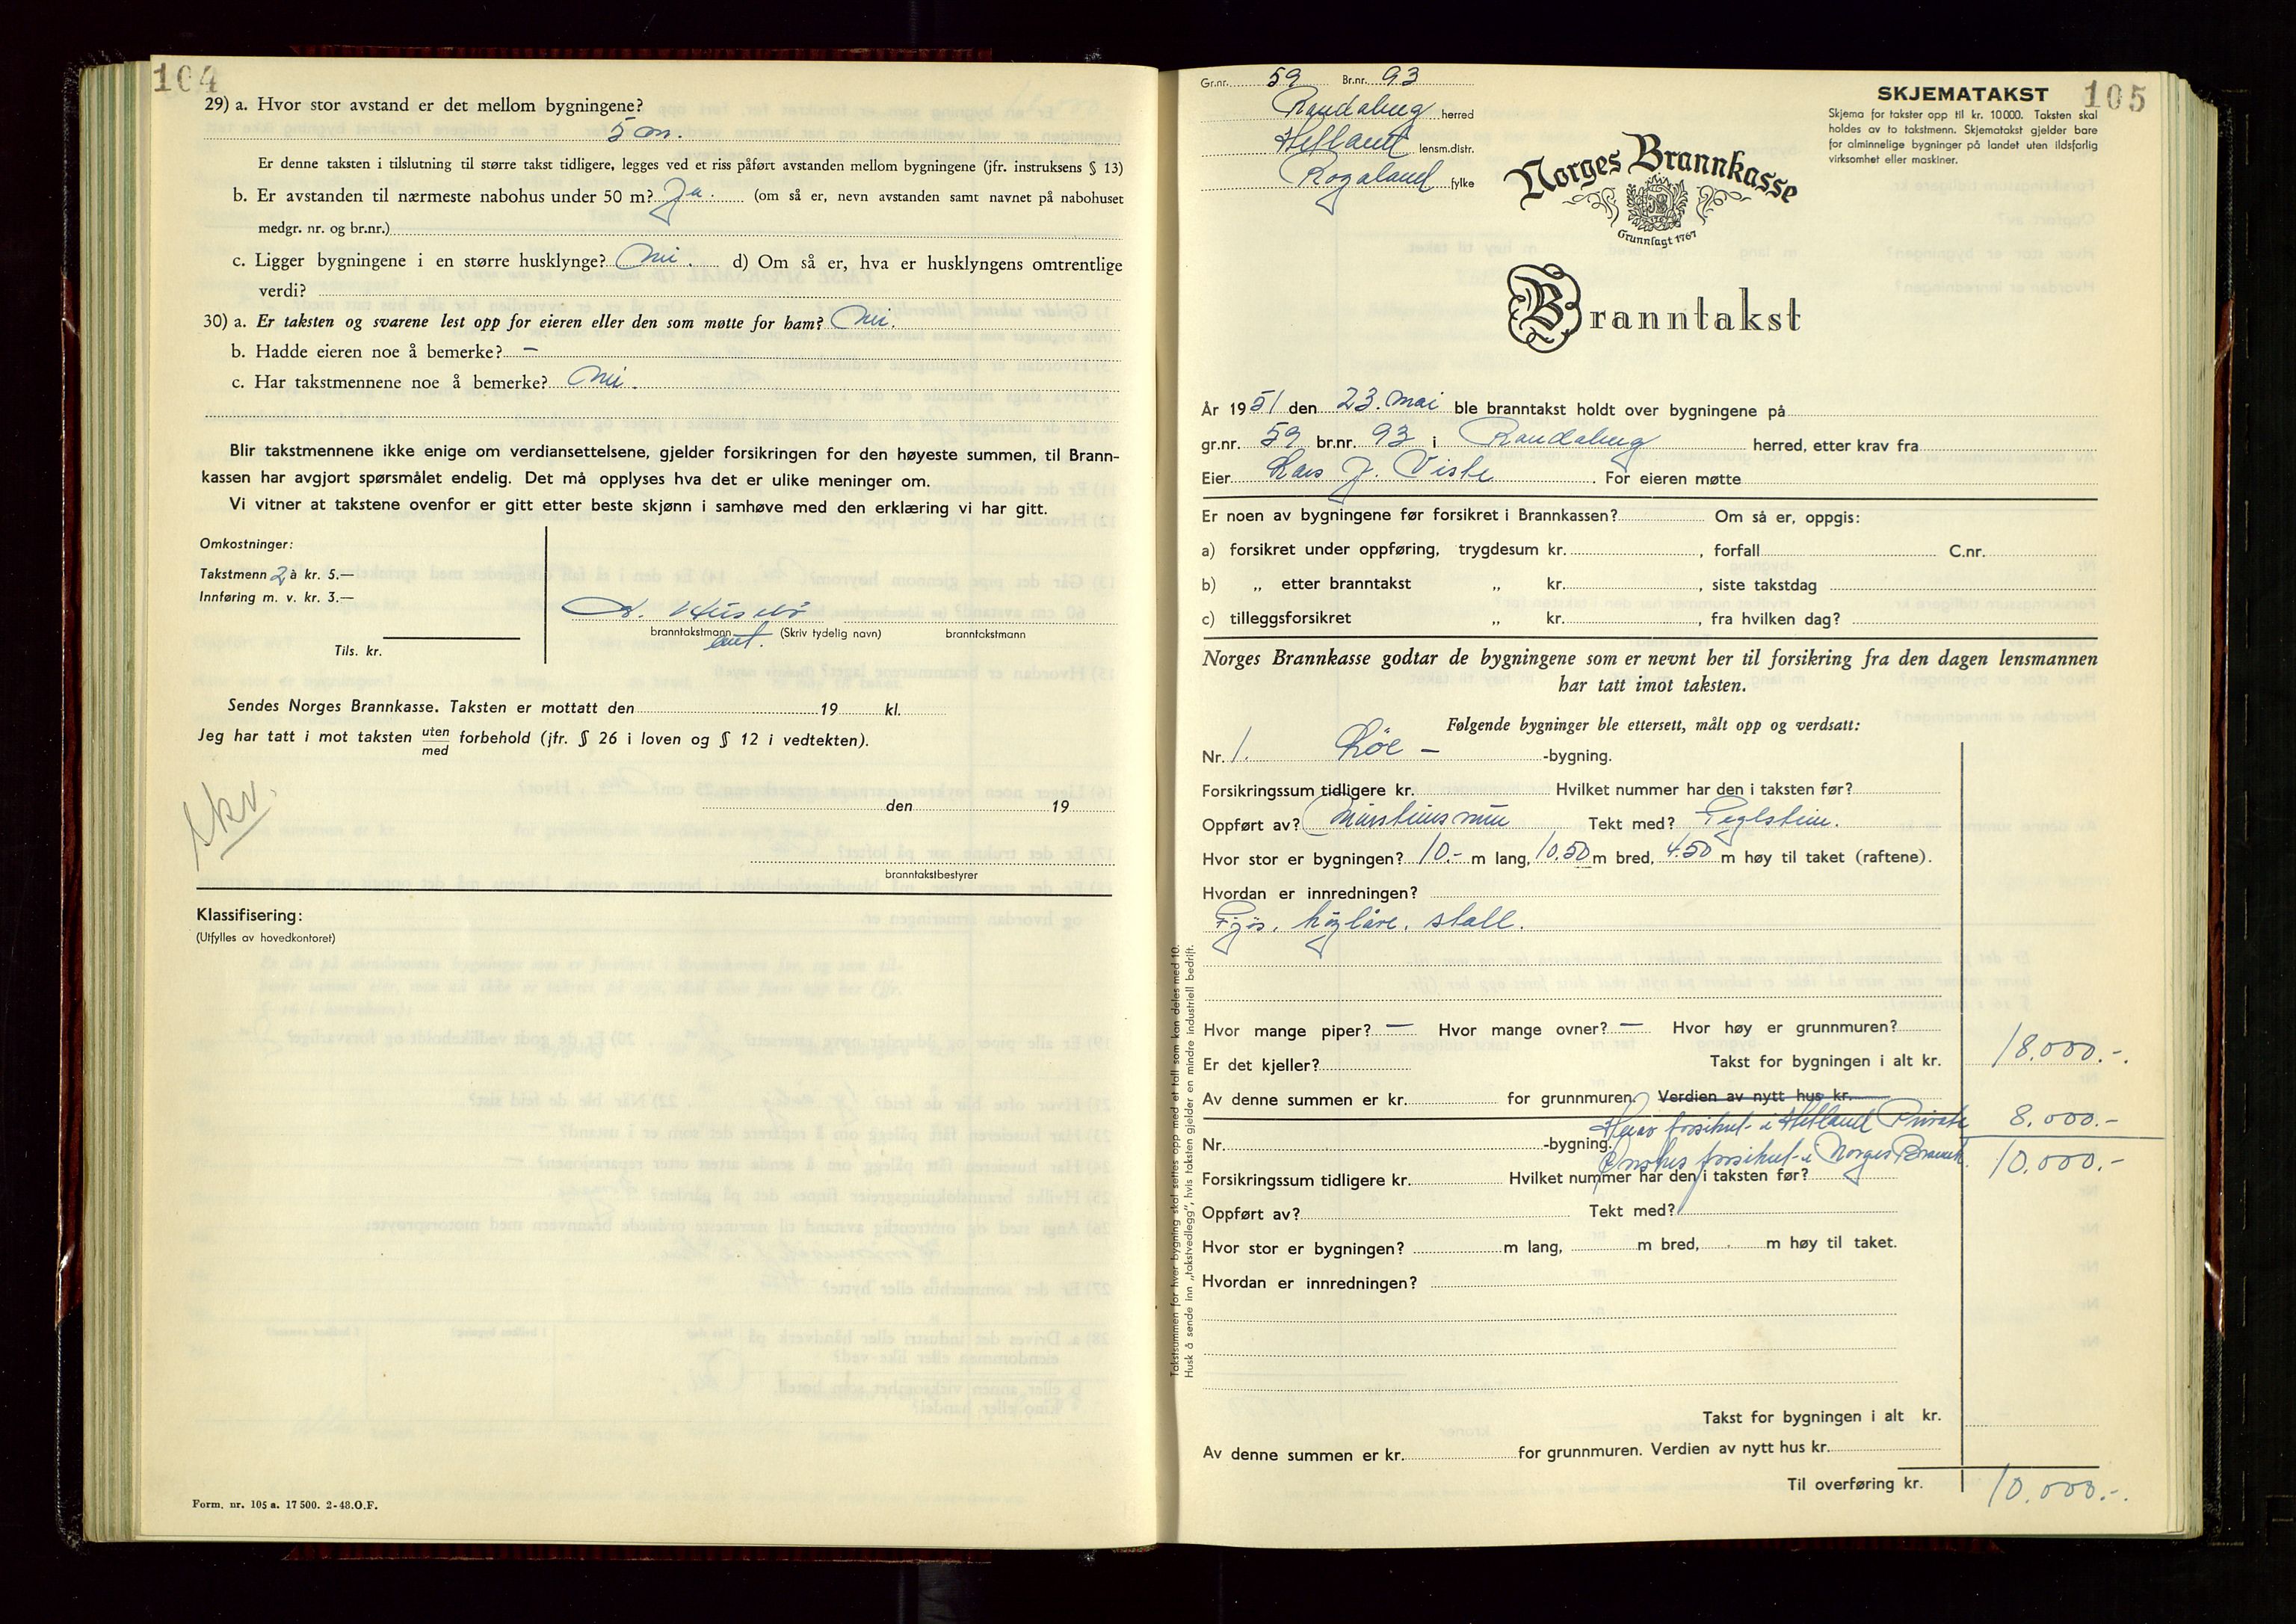 104
29) a. Hvor stor avstand er det mellom bygningene?
5 m.
Er denne taksten i tilslutning til større takst tidligere, legges ved et riss påført avstanden mellom bygningene (jfr. instruksens § 13)
b. Er avstanden til nærmeste nabohus under 50 m? Ja. (om så er, nevn avstanden samt navnet på nabohuset
medgr. nr. og br.nr.)
c. Ligger bygningene i en større husklynge? Nei. d) Om så er, hva er husklyngens omtrentlige
verdi?
30) a. Er taksten og svarene lest opp for eieren eller den som møtte for ham? Nei.
b. Hadde eieren noe å bemerke? —
c. Har takstmennene noe å bemerke? Nei.
Blir takstmennene ikke enige om verdiansettelsene, gjelder forsikringen for den høyeste summen, til Brann-
kassen har avgjort spørsmålet endelig. Det må opplyses hva det er ulike meninger om.
Vi vitner at takstene ovenfor er gitt etter beste skjønn i samhøve med den erklæring vi har gitt.
Omkostninger:
Takstmenn 2 à kr. 5.—
Innføring m. v. kr. 3.—
Tils. kr.
branntakstmann (Skriv tydelig navn) branntakstmann
Sendes Norges Brannkasse. Taksten er mottatt den 19 kl.
Jeg har tatt i mot taksten uten/med forbehold (jfr. § 26 i loven og § 12 i vedtekten).
skv.
den 19
branntakstbestyrer
Klassifisering:
(Utfylles av hovedkontoret)
Form. nr. 105 a. 17 500. 2-48.O.F.
Gr.nr. 59 Br.nr. 93
Randaberg herred
Hetland lensm.distr.
Rogaland fylke
SKJEMATAKST
105
Skjema for takster opp til kr. 10 000. Taksten skal
holdes av to takstmenn. Skjematakst gjelder bare
for alminnelige bygninger på landet uten ildsfarlig
virksomhet eller maskiner.
Norges Brannkasse
Grunnlagt 1767
Branntakst
År 1951 den 23. mai ble branntakst holdt over bygningene på
gr.nr. 59 br.nr. 93 i Randaberg herred, etter krav fra
Eier Lars J. Viste. For eieren møtte
Er noen av bygningene før forsikret i Brannkassen? Om så er, oppgis:
a) forsikret under oppføring, trygdesum kr. , forfall C.nr.
b) „ etter branntakst „ kr. , siste takstdag
c) tilleggsforsikret „ kr. , fra hvilken dag?
Norges Brannkasse godtar de bygningene som er nevnt her til forsikring fra den dagen lensmannen
har tatt imot taksten.
Følgende bygninger ble ettersett, målt opp og verdsatt:
Nr. 1. Løe - -bygning.
Forsikringssum tidligere kr. Hvilket nummer har den i taksten før?
Oppført av? Murstensmur Tekt med? Teglstein.
Hvor stor er bygningen? 10.- m lang, 10.50 m bred, 4.50 m høy til taket (raftene).
Hvordan er innredningen?
Fjøs, høylåve, stall.
Hvor mange piper? — Hvor mange ovner? — Hvor høy er grunnmuren?
Er det kjeller? Takst for bygningen i alt kr. 18.000.-.
Av denne summen er kr. for grunnmuren. Verdien av nytt hus kr.
Herav forsikret i Hetland Private 8.000.-
Nr. -bygning.
Ønskes forsikret i Norges Brannk. 10.000.-
Forsikringssum tidligere kr. Hvilket nummer har den i taksten før?
Oppført av? Tekt med?
Hvor stor er bygningen? m lang, m bred, m høy til taket.
Hvordan er innredningen?
Takst for bygningen i alt kr.
Av denne summen er kr. for grunnmuren. Verdien av nytt hus kr.
Til overføring kr. 10.000.-.
Takstsummen for hver bygning skal settes opp med et tall som kan deles med 10.
Husk å sende inn „takstvedlegg", hvis taksten gjelder en mindre industriell bedrift.